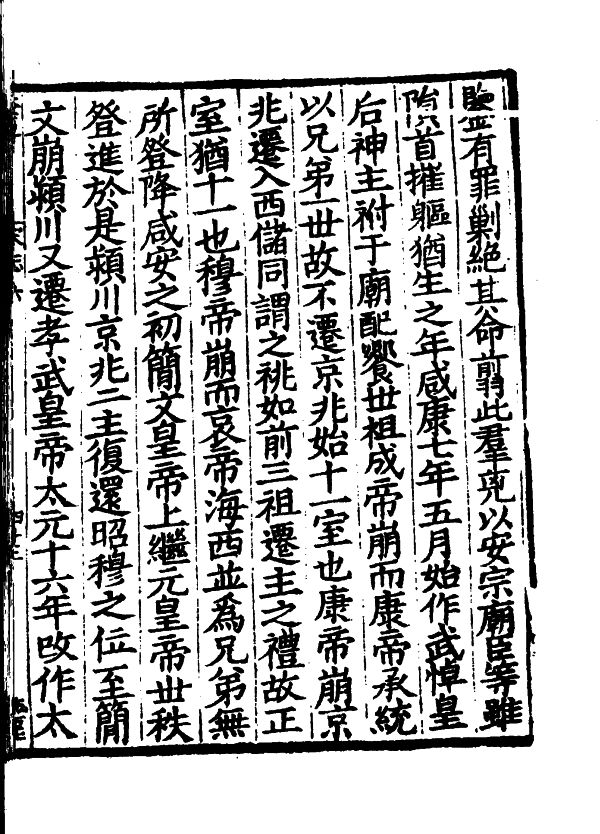 鑒有罪剿絕其命翦此羣兇以安宗廟臣等雖
隕首摧軀猶生之年咸康七年五月始作武悼皇
后神主祔于廟配饗世祖成帝崩而康帝承統
以兄弟一世故不遷京兆始十一室也康帝崩京
兆遷入西儲同謂之祧如前三祖遷主之禮故正
室猶十一也穆帝崩而哀帝海西並爲兄弟無
所登降咸安之初簡文皇帝上繼元皇帝世秩
登進於是潁川京兆二主復還昭穆之位至簡
文崩潁川又遷孝武皇帝太元十六年改作太